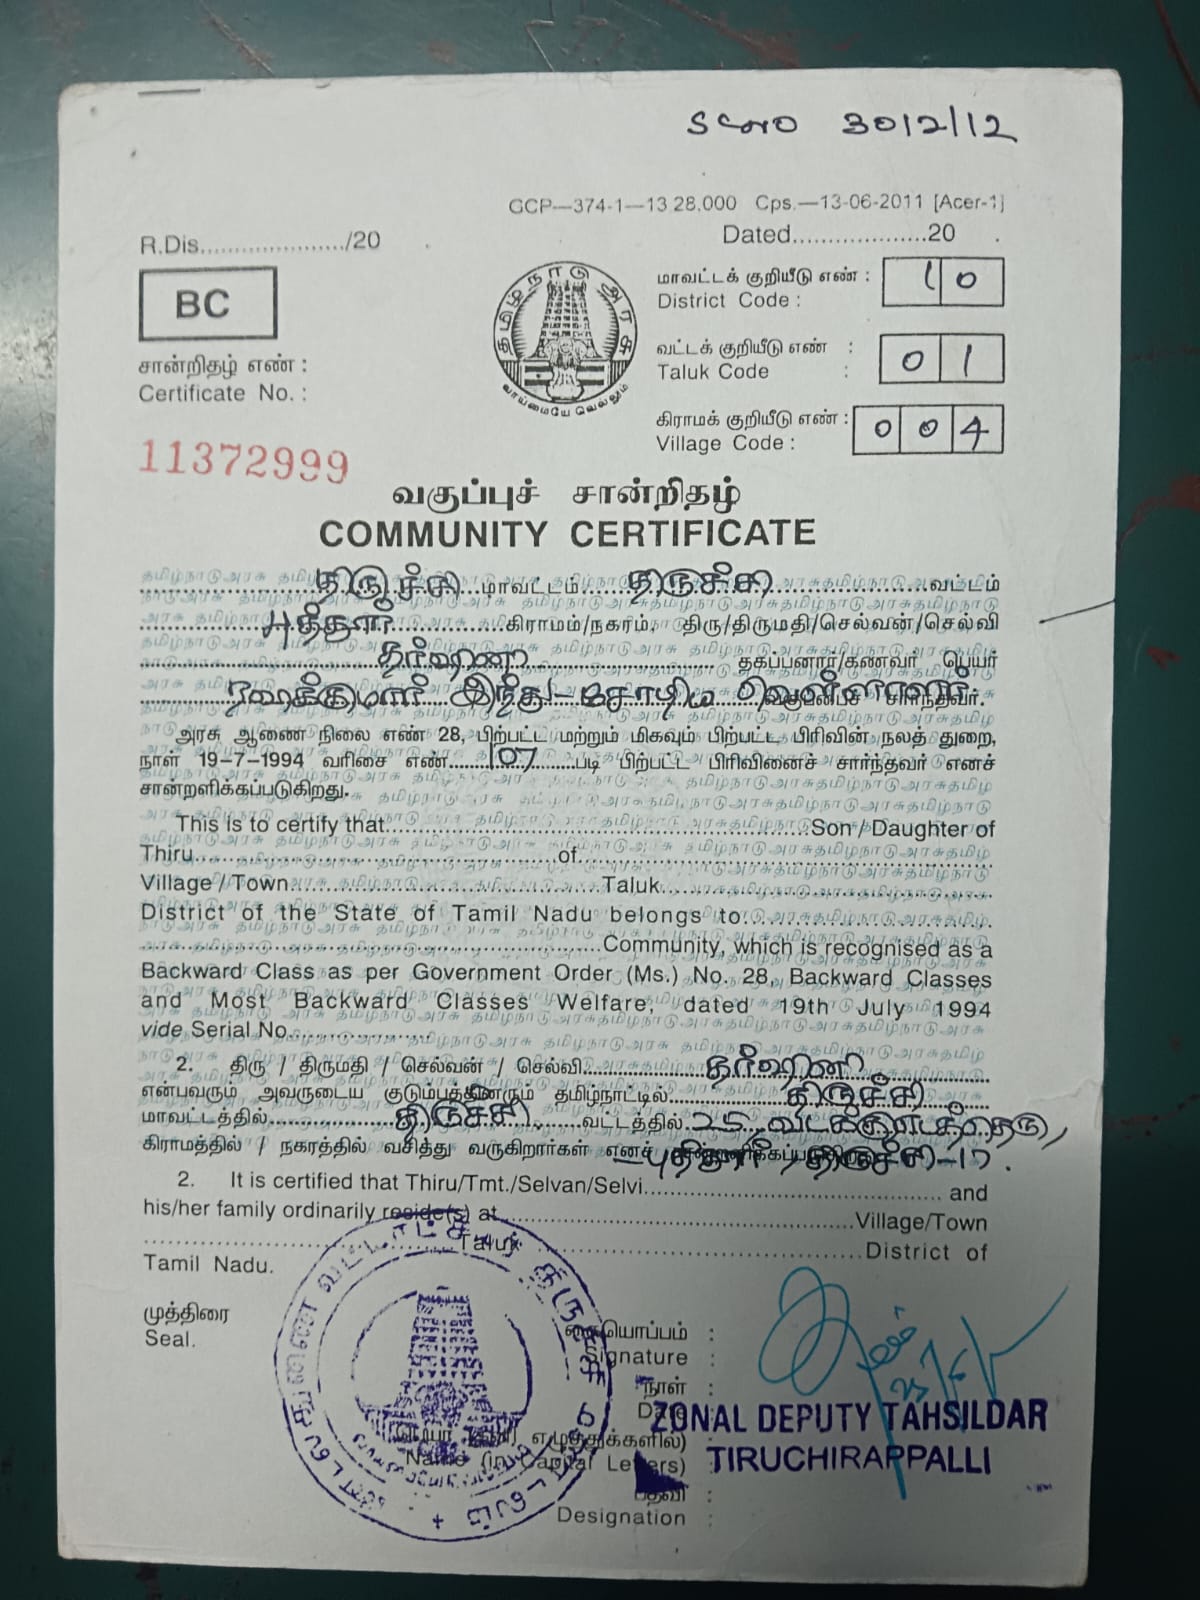 SCNO 3012/12
GCP—374-1—13 28,000 Cps.—13-06-2011 [Acer-1]
R.Dis...................../20
Dated...................20 .
BC
தமிழ்நாடு அரசு
வாய்மையே வெல்லும்
மாவட்டக் குறியீடு எண் : 10
District Code :
வட்டக் குறியீடு எண் : 01
Taluk Code :
கிராமக் குறியீடு எண் : 004
Village Code :
சான்றிதழ் எண் :
Certificate No. :
11372999
வகுப்புச் சான்றிதழ்
COMMUNITY CERTIFICATE
திருச்சி மாவட்டம் திருச்சி வட்டம்
புத்தூர் கிராமம்/நகரம், திரு/திருமதி/செல்வன்/செல்வி
தர்ஷினி தகப்பனார்/கணவர் பெயர்
இந்து – சோழிய வெள்ளாளர் வகுப்பைச் சார்ந்தவர்.
அரசு ஆணை நிலை எண் 28, பிற்பட்ட மற்றும் மிகவும் பிற்பட்ட பிரிவின் நலத் துறை,
நாள் 19-7-1994 வரிசை எண் 107 படி பிற்பட்ட பிரிவினைச் சார்ந்தவர் எனச்
சான்றளிக்கப்படுகிறது.
This Is to certify that............Son / Daughter of
Thiru............of............
Village / Town............Taluk............
District of the State of Tamil Nadu belongs to............
............Community, which is recognised as a
Backward Class as per Government Order (Ms.) No. 28, Backward Classes
and Most Backward Classes Welfare, dated 19th July 1994
vide Serial No............
2. திரு / திருமதி / செல்வன் / செல்வி தர்ஷினி
என்பவரும் அவருடைய குடும்பத்தினரும் தமிழ்நாட்டில் திருச்சி
மாவட்டத்தில் திருச்சி வட்டத்தில் 25, வடக்கு தெரு,
கிராமத்தில் / நகரத்தில் வசித்து வருகிறார்கள் எனச் சான்றளிக்கப்படுகிறது. புத்தூர், திருச்சி-17.
2. It is certified that Thiru/Tmt./Selvan/Selvi............ and
his/her family ordinarily reside(s) at............Village/Town
............Taluk ............District of
Tamil Nadu.
முத்திரை
Seal.
கையொப்பம் :
Signature :
நாள் :
Date
ZONAL DEPUTY TAHSILDAR
(பெயர் எழுத்துக்களில்)
Name (in Capital Letters) :
TIRUCHIRAPPALLI
பதவி :
Designation :